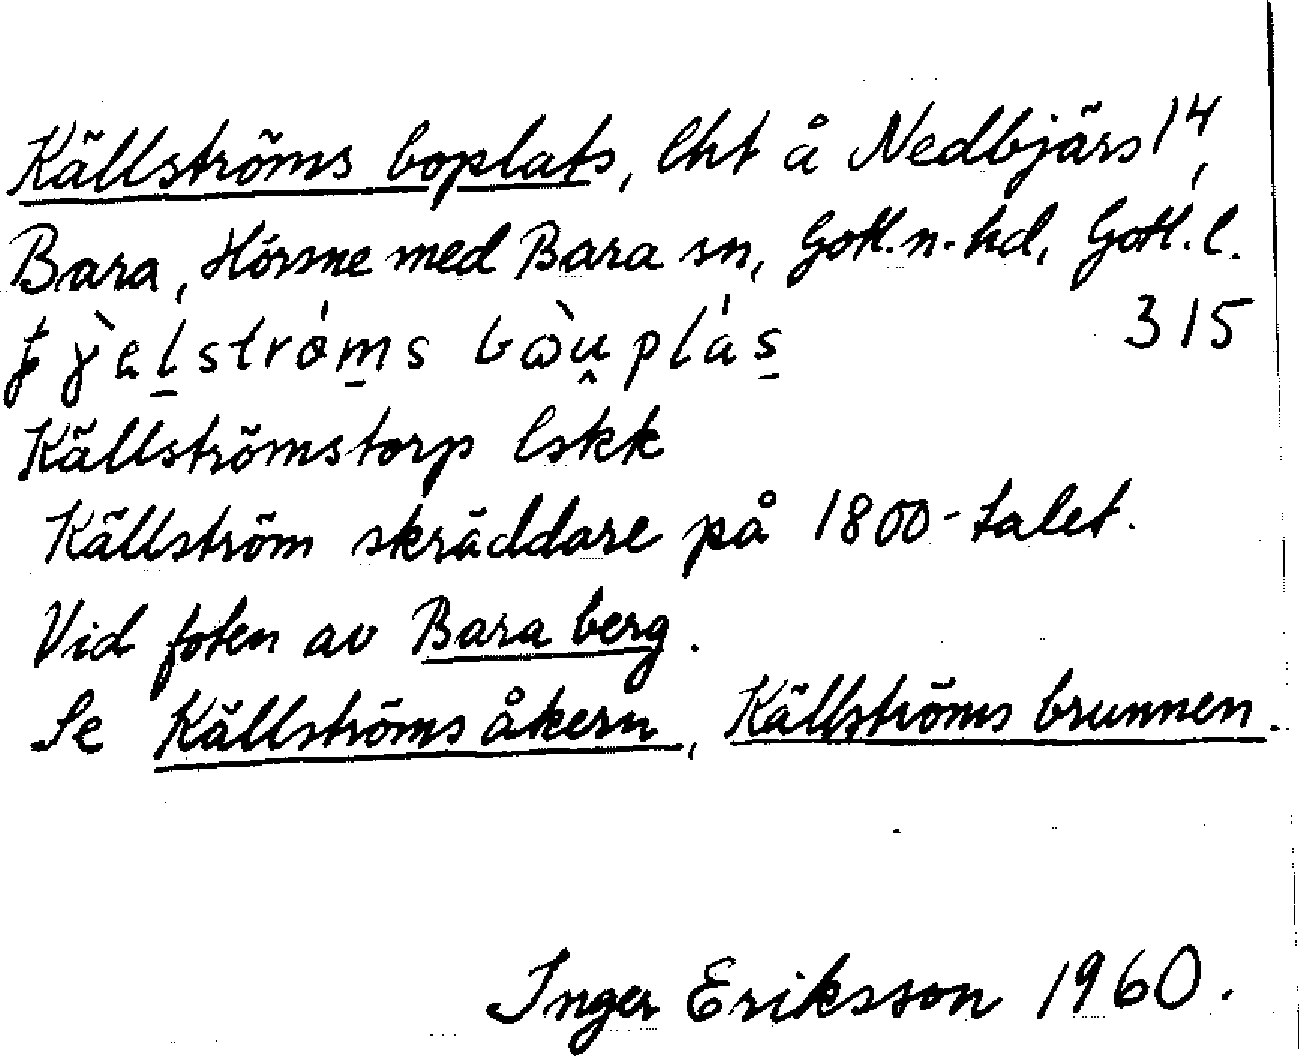 Källströms boplats, lht å Nedbjärs 1⁴,
Bara, Hörsne med Bara sn, Gotl. n. hd, Gotl. l.
315
Källströmstorp lskk
Källström skräddare på 1800-talet.
Vid foten av Bara berg.
Se Källströms åkern, Källströms brunnen.
Inger Eriksson 1960.